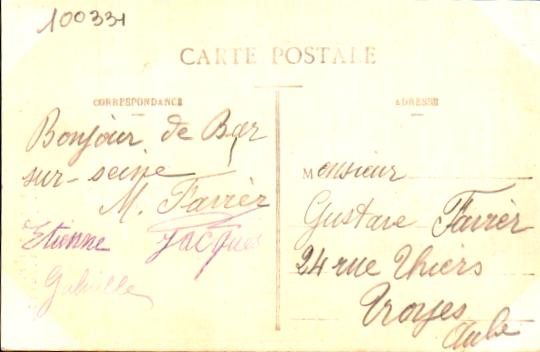 100331
CARTE POSTALE
CORRESPONDANCE
ADRESSE
Bonjour de Bar
sur-seine
M. Favier
Etienne Jacques
Monsieur
Gustave Favier
24 rue Thiers
Troyes
Aube